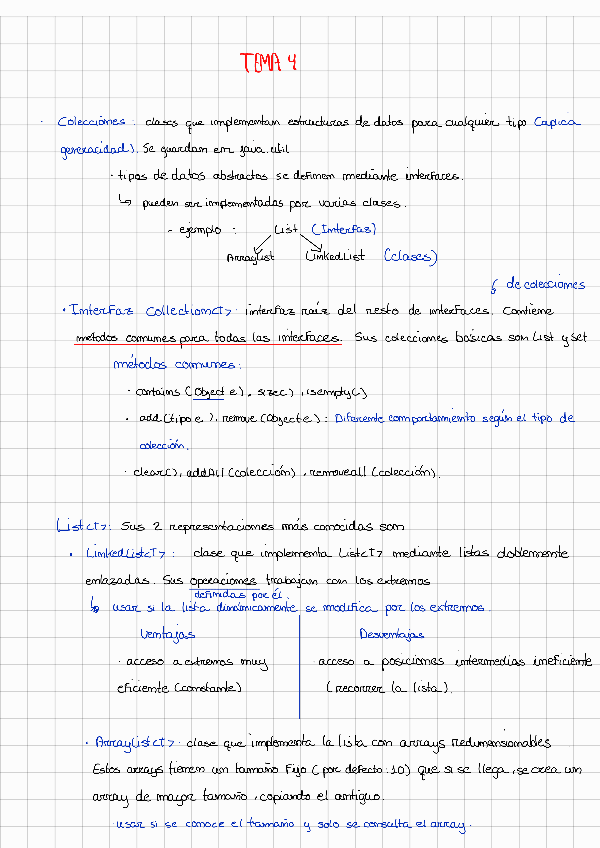 TEMA 4
· Colecciones: clases que implementan estructuras de datos para cualquier tipo (aplica
generacidad). Se guardan en java.util
· tipos de datos abstractos se definen mediante interfaces.
↳ pueden ser implementadas por varias clases.
- ejemplo: List (Interfaz)
ArrayList LinkedList (clases)
de colecciones
· Interfaz Collection<T>: interfaz raíz del resto de interfaces. Contiene
metodos comunes para todas las interfaces. Sus colecciones básicas son List y Set
métodos comunes:
· contains (Object e), size(), isempty()
· add (tipo e), remove (Object e): Diferente comportamiento según el tipo de
colección.
· clear(), addAll (colección), removeall (colección).
List<T>: Sus 2 representaciones más conocidas son
· LinkedList<T>: clase que implementa List<T> mediante listas doblemente
enlazadas. Sus operaciones trabajan con los extremos
definidas por él.
↳ usar si la lista dinámicamente se modifica por los extremos.
Ventajas Desventajas
· acceso a extremos muy · acceso a posiciones intermedias ineficiente
eficiente (constante) (recorrer la lista).
· ArrayList<T>: clase que implementa la lista con arrays redimensionables
Estos arrays tienen un tamaño fijo (por defecto: 10) que si se llega, se crea un
array de mayor tamaño, copiando el antiguo.
· usar si se conoce el tamaño y solo se consulta el array.